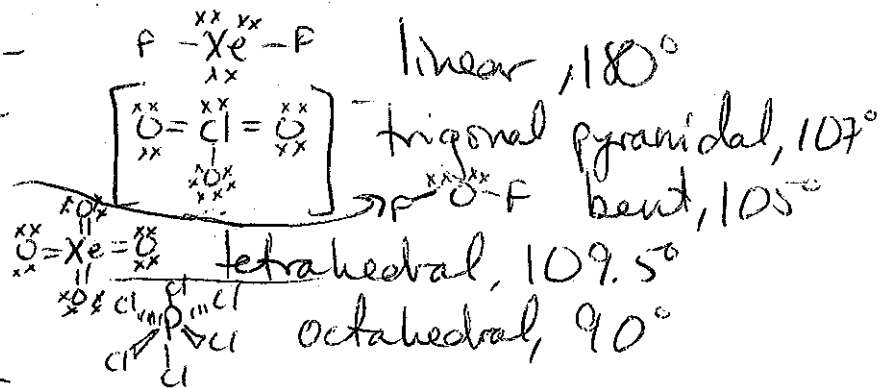 F - Xe - F linear, 180°
[O = Cl = O trigonal pyramidal, 107°
O] F - O - F bent, 105°
O
O = Xe = O tetrahedral, 109.5°
O Cl Cl Cl
P octahedral, 90°
Cl Cl
Cl